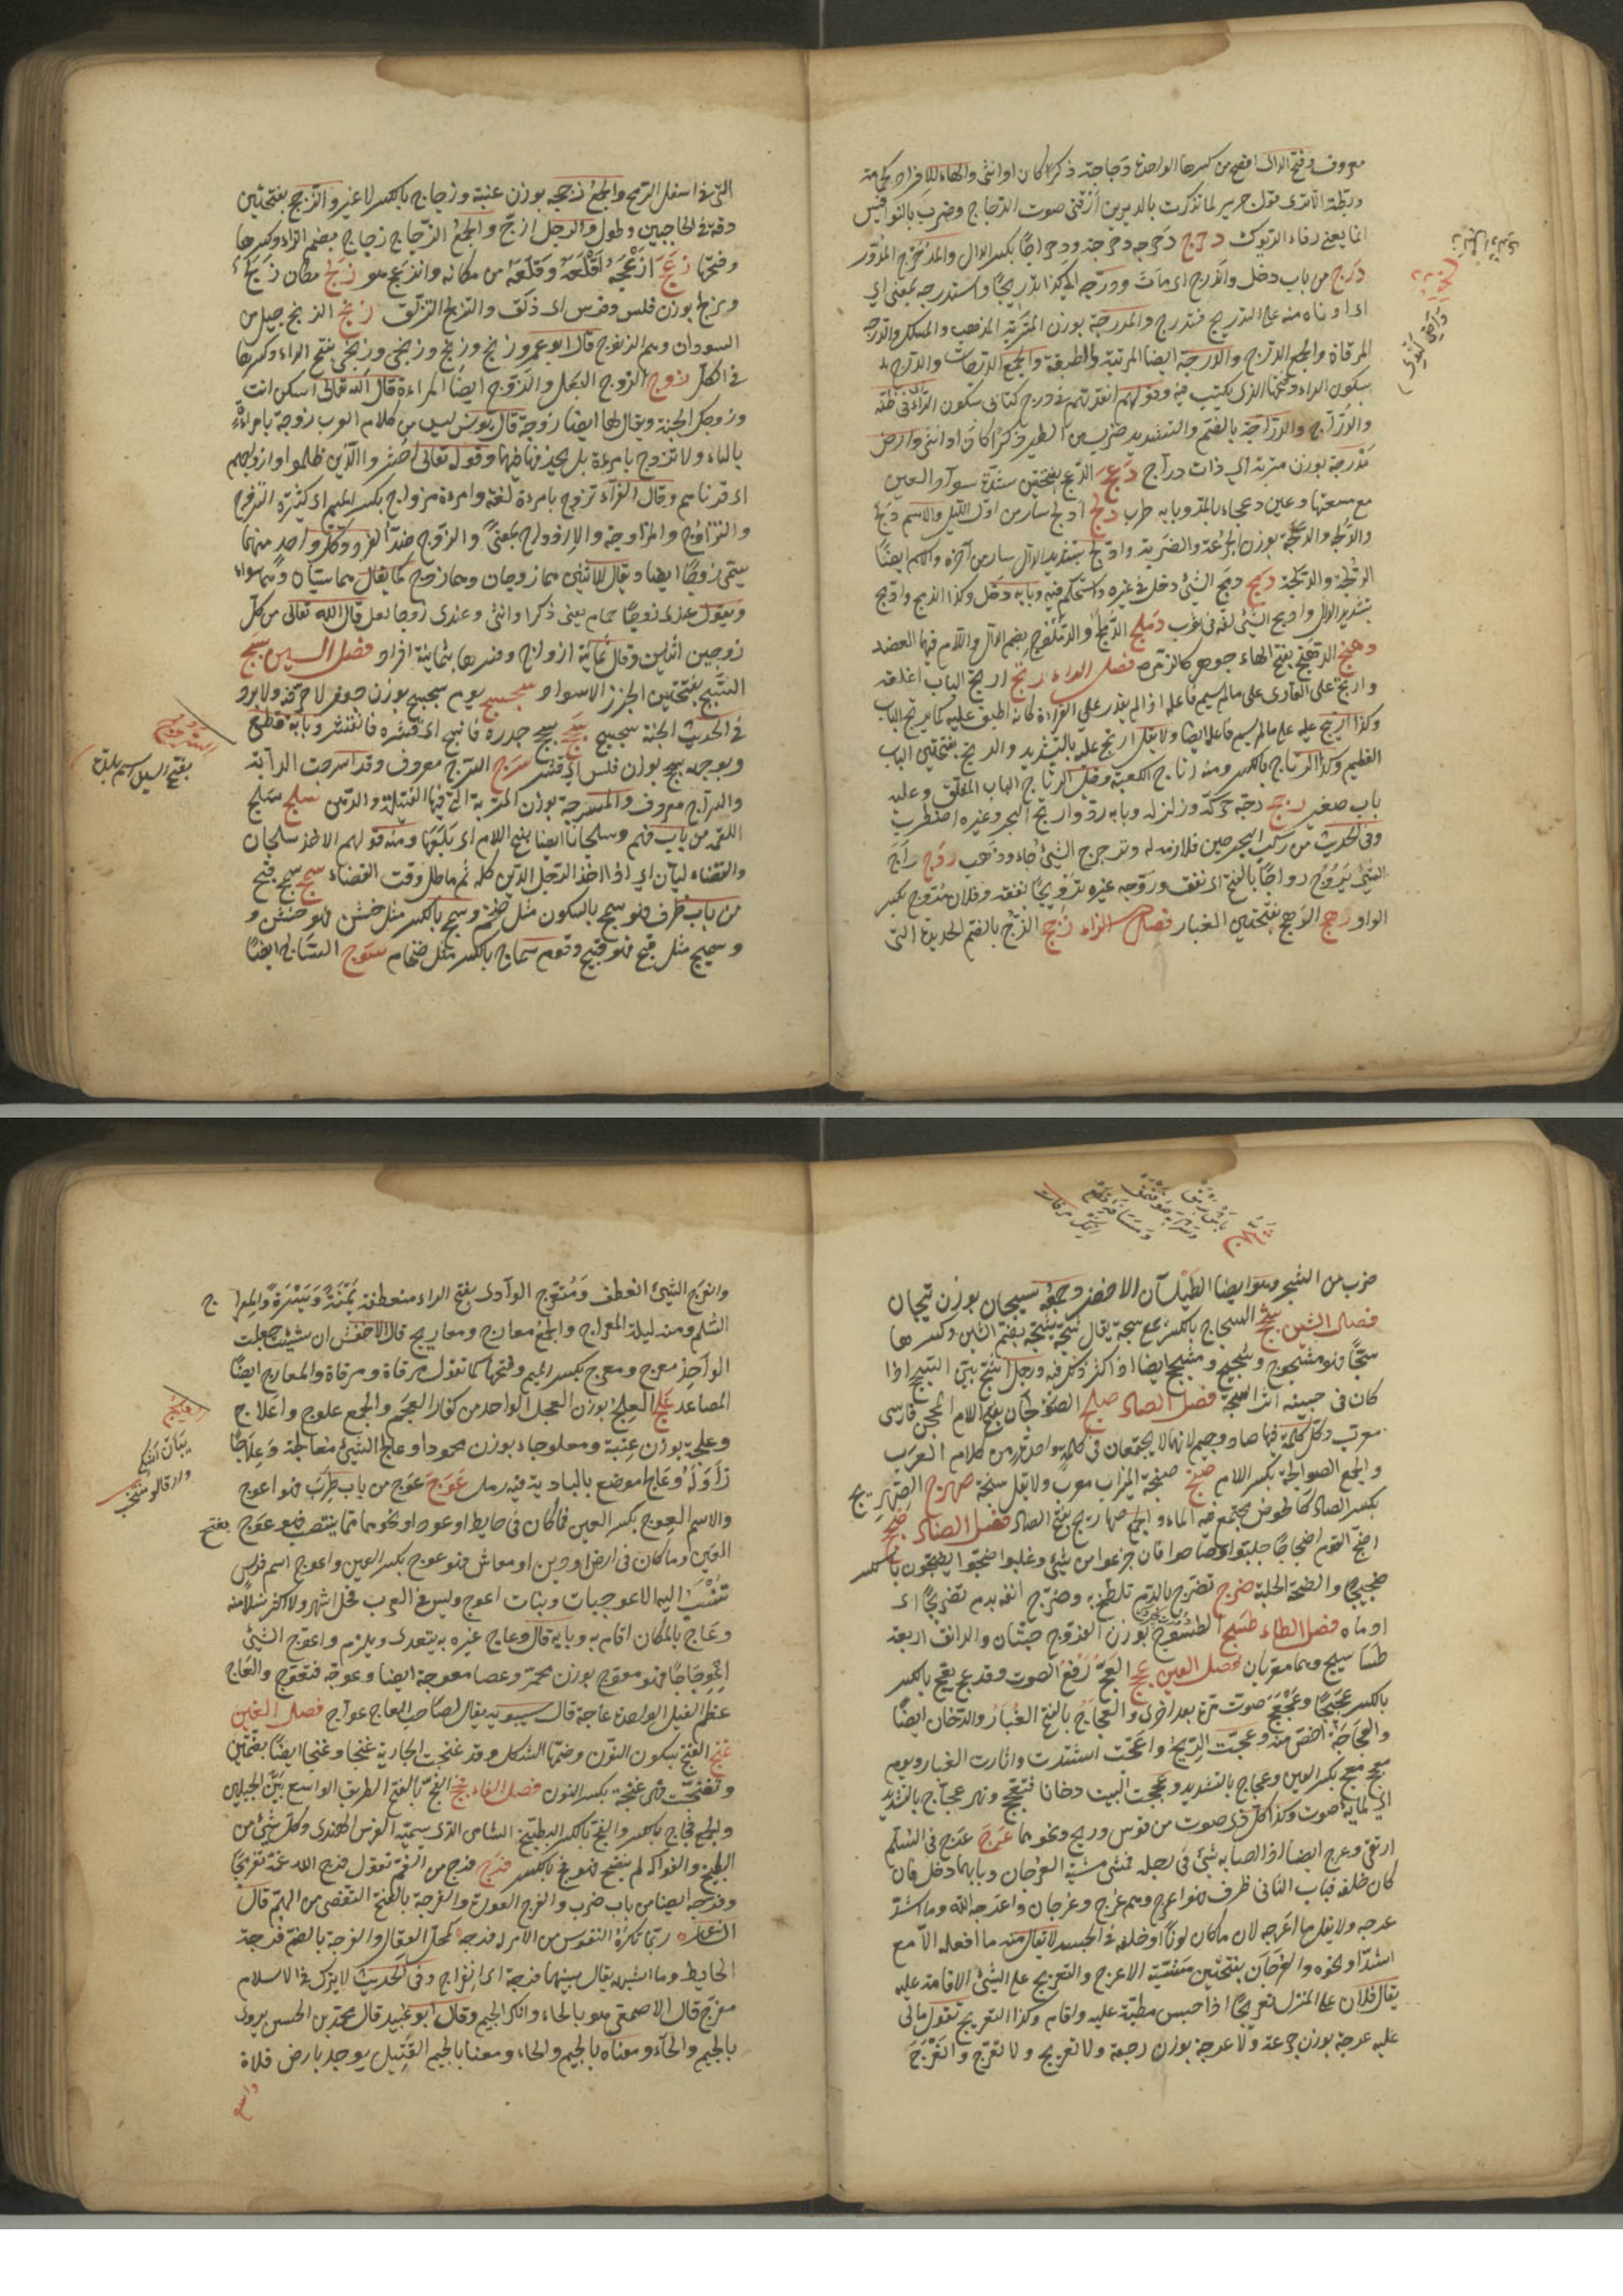 معروف وفتح الدال افصح من كسرها الواحدة دجاجة ذكرا كان او انثى والهاء للافراد كحمامة
وبطة الا ترى قول جرير لما تذكرت بالديرين ارقني صوت الدجاج وضرب بالنواقيس
انما يعني زقاء الديوك دحرج دحرجه دحرجة ودحراجا بكسر الدال والمدحرج المدور
درج من باب دخل واندرج اي مات ودرجه الى كذا تدريجا واستدرجه بمعنى اي
ادناه منه على التدريج فتدرج والمدرجة بوزن المتربة المذهب والمسلك والدرجة
المرقاة والجمع الدرج والدرجة ايضا المرتبة والطبقة والجمع الدرجات والدرج
بسكون الراء وفتحها الذي يكتب فيه وقولهم انفذته في درج كتابي بسكون الراء في طيه
والدراج والدراجة بالضم والتشديد ضرب من الطير ذكرا كان او انثى وارض
مدرجة بوزن متربة اي ذات دراج دعج الدعج بفتحتين شدة سواد العين
مع سعتها وعين دعجاء بالمد وبابه طرب دلج ادلج سار من اول الليل والاسم الدلج
والدلجة والدلجة بوزن الجرعة والضربة وادلج بتشديد الدال سار من آخره والاسم ايضا
الدلجة والدلجة دمج دمج الشيء دخل في غيره واستحكم فيه وبابه دخل وكذا اندمج وادمج
بتشديد الدال وادمج الشيء لفه في ثوب دملج الدملج والدملوج بضم الدال واللام فيهما العضد
دهنج الدهنج بفتح الهاء جوهر كالزمرد فصل الراء رتج ارتج الباب اغلقه
وارتج على القارئ على ما لم يسم فاعله اذا لم يقدر على القراءة كانه اطبق عليه كما يرتج الباب
وكذا ارتتج عليه على ما لم يسم فاعله ايضا ولا يقل ارتج عليه بالتشديد والرتج بفتحتين الباب
العظيم وكذا الرتاج بالكسر ومنه رتاج الكعبة وقيل الرتاج الباب المغلق وعليه
باب صغير رجج رجه حركه وزلزله وبابه رد وارتج البحر وغيره اضطرب
وفي الحديث من ركب البحر حين فلا ذمة له وترجرج الشيء جاء وذهب روج راج
الشيء يروج رواجا بالفتح اي نفق وروجه غيره ترويجا نفقه وفلان مروج بكسر
الواو رهج الرهج بفتحتين الغبار فصل الزاء زجج الزج بالضم الحديدة التي
التي في اسفل الرمح والجمع زججه بوزن عنبة وزجاج بالكسر لا غير والزجج بفتحتين
دقة في الحاجبين وطول والرجل ازج والجمع الزجاج زجاج بضم الزاء وكسرها
وفتحها زعج ازعجه اقلعه وقلعه من مكانه وانزعج هو زلج مكان زلج
وزلج بوزن فلس وفرس اي زلق والتزلج التزلق زنج الزنج جيل من
السودان وهم الزنوج قال ابو عمرو زنج وزنج وزنجي وزنجي بفتح الزاء وكسرها
في الكل زوج الزوج البعل والزوج ايضا المراة قال الله تعالى اسكن انت
وزوجك الجنة ويقال لها ايضا زوجة قال يونس ليس من كلام العرب زوجه بامراة
بالباء ولا تزوج بامراة بل بحذفها فيهما وقوله تعالى احشروا الذين ظلموا وازواجهم
اي قرناءهم وقال الفراء تزوج بامراة لغة وامراة مزواج بكسر الميم اي كثيرة التزوج
والتزاوج والمزاوجة والازدواج بمعنى والزوج ضد الفرد وكل واحد منهما
يسمى زوجا ايضا ويقال للاثنين هما زوجان وهما زوج كما يقال هما سيان وهما سواء
وتقول عندي زوجا حمام يعني ذكرا وانثى وعندي زوجا نعل قال الله تعالى من كل
زوجين اثنين وقال ثمانية ازواج وفسرها بثمانية افراد فصل السين سبج
السبج بفتحتين الخرز الاسود سجسج يوم سجسج بوزن جعفر لا حر فيه ولا برد
في الحديث الجنة سجسج سحج سحج جلده فانسحج اي قشره فانقشر وبابه قطع
وبوجهه سحج بوزن فلس اي قشر سرج السرج معروف وقد اسرجت الدابة
والسراج معروف والمسرجة بوزن المتربة التي فيها الفتيلة والدهن سلج سلج
اللقمة من باب فهم وسلجانا ايضا بفتح اللام اي بلعها ومنه قولهم الاخذ سلجان
والقضاء ليان اي اذا اخذ الرجل الدين اكله ثم ماطل وقت القضاء سمج سمج قبح
من باب ظرف فهو سمج بالسكون مثل ضخم وسمج بالكسر مثل خشن فهو خشن و
وسميج مثل قبح فهو قبيح وقوم سماج بالكسر مثل ضخام سوج الساج ايضا
السروج
بفتح السين اسم بلدة
ضرب من الشجر وهو ايضا الطيلسان الاخضر وجمعه سيجان بوزن تيجان
فصل الشين شجج الشجاج بالكسر جمع شجة يقال شجه يشجه بضم الشين وكسرها
شجا فهو مشجوج وشجيج ومشجج ايضا اذا كثر ذلك فيه ورجل اشج بين الشجج اذا
كان في جبينه اثر الشجة فصل الصاد صلج الصولجان بفتح اللام المحجن فارسي
معرب وكل كلمة فيها صاد وجيم لانهما لا يجتمعان في كلمة واحدة من كلام العرب
والجمع الصوالجة بكسر اللام صنج صنجة الميزان معرب ولا يقل سنجة صهرج الصهريج
بكسر الصاد كالحوض يجتمع فيه الماء والجمع صهاريج بفتح الصاد فصل الضاد ضجج
اضج القوم اضجاجا جلبوا وصاحوا فان جزعوا من شيء وغلبوا ضجوا يضجون بالكسر
ضجيجا والضجة الجلبة ضرج تضرج بالدم تلطخ به وضرج انفه بدم تضريجا اي
ادماه فصل الطاء طسج الطسوج بوزن الفروج حبتان والدانق اربعة
طساسيج وهما معربان فصل العين عجج العج رفع الصوت وقد عج يعج بالكسر
بالكسر عجيجا وعجعج صوت مرة بعد اخرى والعجاج بالفتح الغبار والدخان ايضا
والعجاجة اخص منه وعجت الريح واعجت اشتدت واثارت الغبار ويوم
معج بكسر العين وعجاج بالتشديد وعججت البيت دخانا فتعجج ونهر عجاج بالتشديد
اي لمائه صوت وكذا كل ذي صوت من قوس وريح ونحوهما عرج عرج في السلم
ارتقى وعرج ايضا اذا اصابه شيء في رجله فمشى مشية العرجان وبابهما دخل فان
كان خلقة فباب الثاني طرب فهو اعرج وهم عرج وعرجان واعرجه الله وما اشد
عرجه ولا يقل ما اعرجه لان ما كان لونا او خلقة في الجسد لا يقال منه ما افعله الا مع
اشد او نحوه والعرجان بفتحتين مشية الاعرج والتعريج على الشيء الاقامة عليه
يقال فلان على المنزل تعريجا اذا حبس مطيته عليه واقام وكذا التعريج تقول مالي
عليه عرجة بوزن جرعة ولا عرجة بوزن رجعة ولا تعريج ولا تعرج وانعرج
وانعرج الشيء انعطف ومنعرج الوادي بفتح الراء منعطفه يمنة ويسرة والمعراج
السلم ومنه ليلة المعراج والجمع معارج ومعاريج قال الاخفش ان شئت جعلت
الواحد معرج ومعرج بكسر الميم وفتحها كما تقول مرقاة ومرقاة والمعارج ايضا
المصاعد علج العلج بوزن العجل الواحد من كفار العجم والجمع علوج واعلاج
وعلجة بوزن عنبة ومعلوجاء بوزن محمودا وعالج الشيء معالجة وعلاجا
زاوله وعالج موضع بالبادية فيه رمل عوج عوج من باب طرب فهو اعوج
والاسم العوج بكسر العين فما كان في حايط او عود او نحوهما مما ينتصب فهو عوج بفتح
العين وما كان في ارض او دين او معاش فهو عوج بكسر العين واعوج اسم فرس
تنسب اليها الاعوجيات وبنات اعوج وليس في العرب فحل اشهر ولا اكثر نسلا منه
وعاج بالمكان اقام به وبابه قال وعاج غيره به يتعدى ويلزم واعوج الشيء
اعوجاجا فهو معوج بوزن محمر وعصا معوجة ايضا وعوجه فتعوج والعاج
عظم الفيل الواحدة عاجة قال سيبويه يقال لصاحب العاج عواج فصل الغين
غنج الغنج بسكون النون وضمها الشكل وقد غنجت الجارية غنجا وغنجا ايضا بفتحتين
وتغنجت فهي غنجة بكسر النون فصل الفاء فجج الفج بالفتح الطريق الواسع بين الجبلين
والجمع فجاج بالكسر والفج بالكسر البطيخ الشامي الذي يسميه الفرس الهندي وكل شيء من
البطيخ والفواكه لم ينضج فهو فج بالكسر فرج فرج من الغم تقول فرج الله غمه تفريجا
وفرجه ايضا من باب ضرب والفرج العورة والفرجة بالفتح التفصي من الهم قال
الشاعر ربما تكره النفوس من الامر له فرجة كحل العقال والفرجة بالضم فرجة
الحايط وما اشبهه يقال بينهما فرجة اي انفراج وفي الحديث لا يترك في الاسلام
مفرج قال الاصمعي هو بالحاء وانكر الجيم وقال ابو عبيد قال محمد بن الحسن يروى
بالجيم والحاء ومعناه بالجيم والحاء ومعناه بالجيم القتيل يوجد بارض فلاة